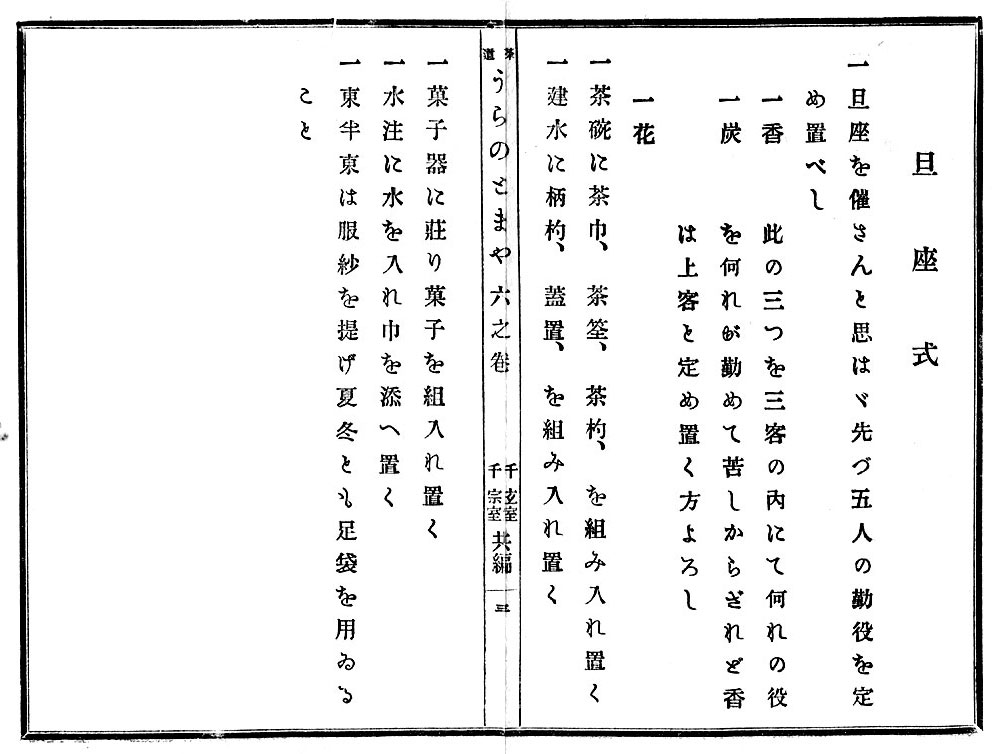 旦座式
一旦座を催さんと思はゞ先づ五人の勤役を定
め置べし
一香
一炭
一花
此の三つを三客の内にて何れの役
を何れが勤めて苦しからざれど香
は上客と定め置く方よろし
一茶碗に茶巾、茶筌、茶杓、を組み入れ置く
一建水に柄杓、蓋置、を組み入れ置く
茶道うらのとまや六之卷
千玄室
千宗室
共編
三
一菓子器に莊り菓子を組入れ置く
一水注に水を入れ巾を添へ置く
一東半東は服紗を提げ夏冬とも足袋を用ゐる
こと